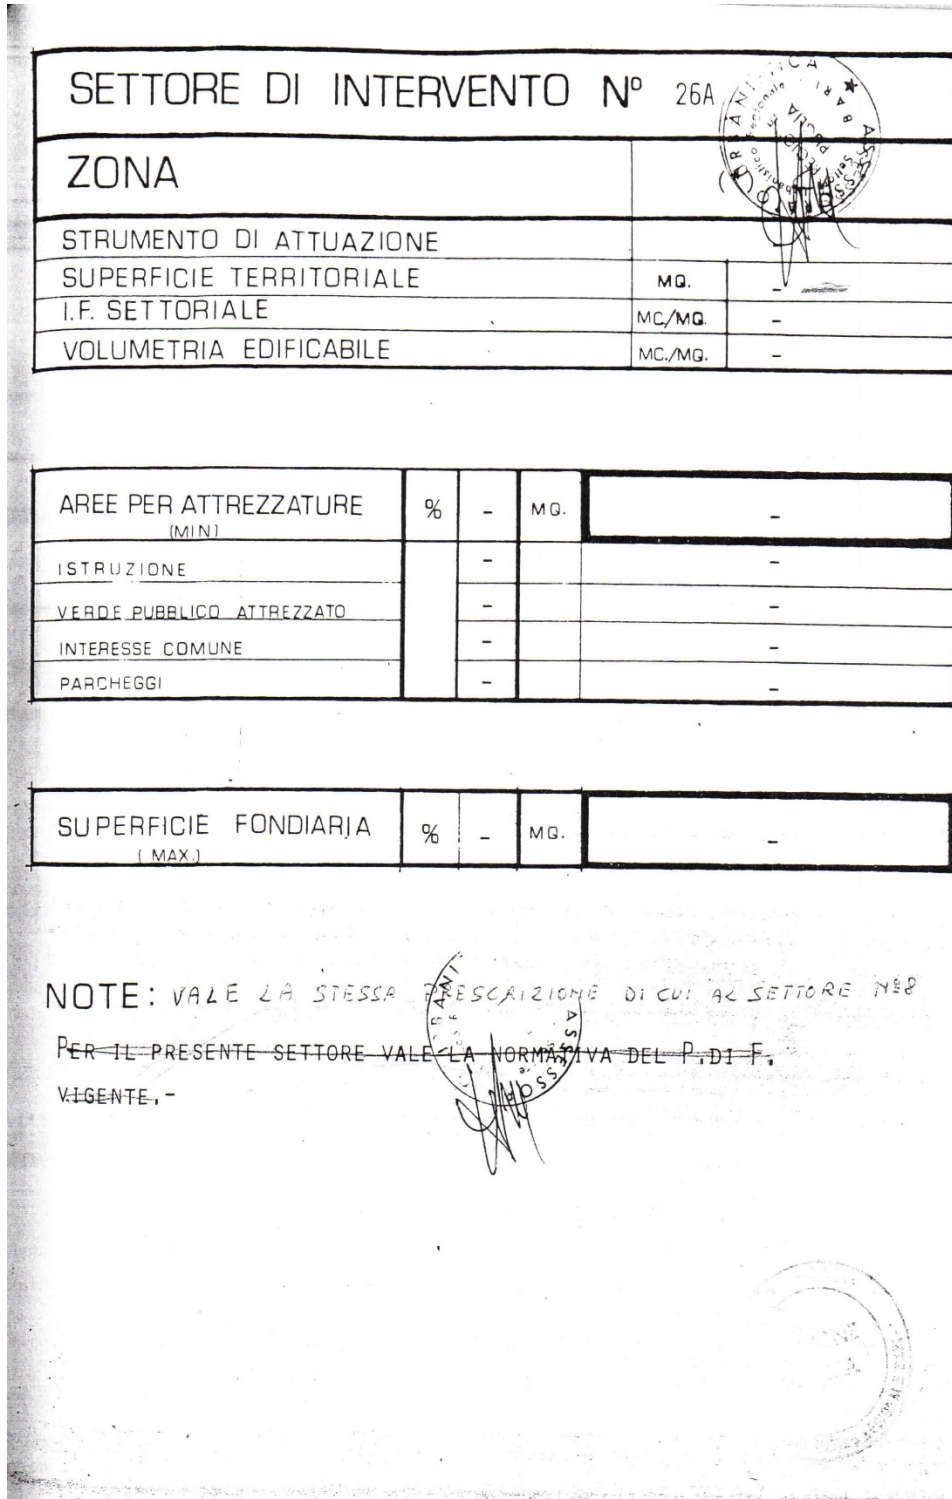 SETTORE DI INTERVENTO Nº 26A
ZONA
STRUMENTO DI ATTUAZIONE
SUPERFICIE TERRITORIALE MQ. -
I.F. SETTORIALE MC/MQ. -
VOLUMETRIA EDIFICABILE MC./MQ. -
AREE PER ATTREZZATURE % - MQ. -
(MIN)
ISTRUZIONE - -
VERDE PUBBLICO ATTREZZATO - -
INTERESSE COMUNE - -
PARCHEGGI - -
SUPERFICIE FONDIARIA % - MQ. -
( MAX.)
NOTE: VALE LA STESSA PRESCRIZIONE DI CUI AL SETTORE Nº8
PER IL PRESENTE SETTORE VALE LA NORMATIVA DEL P.DI F.
VIGENTE.-